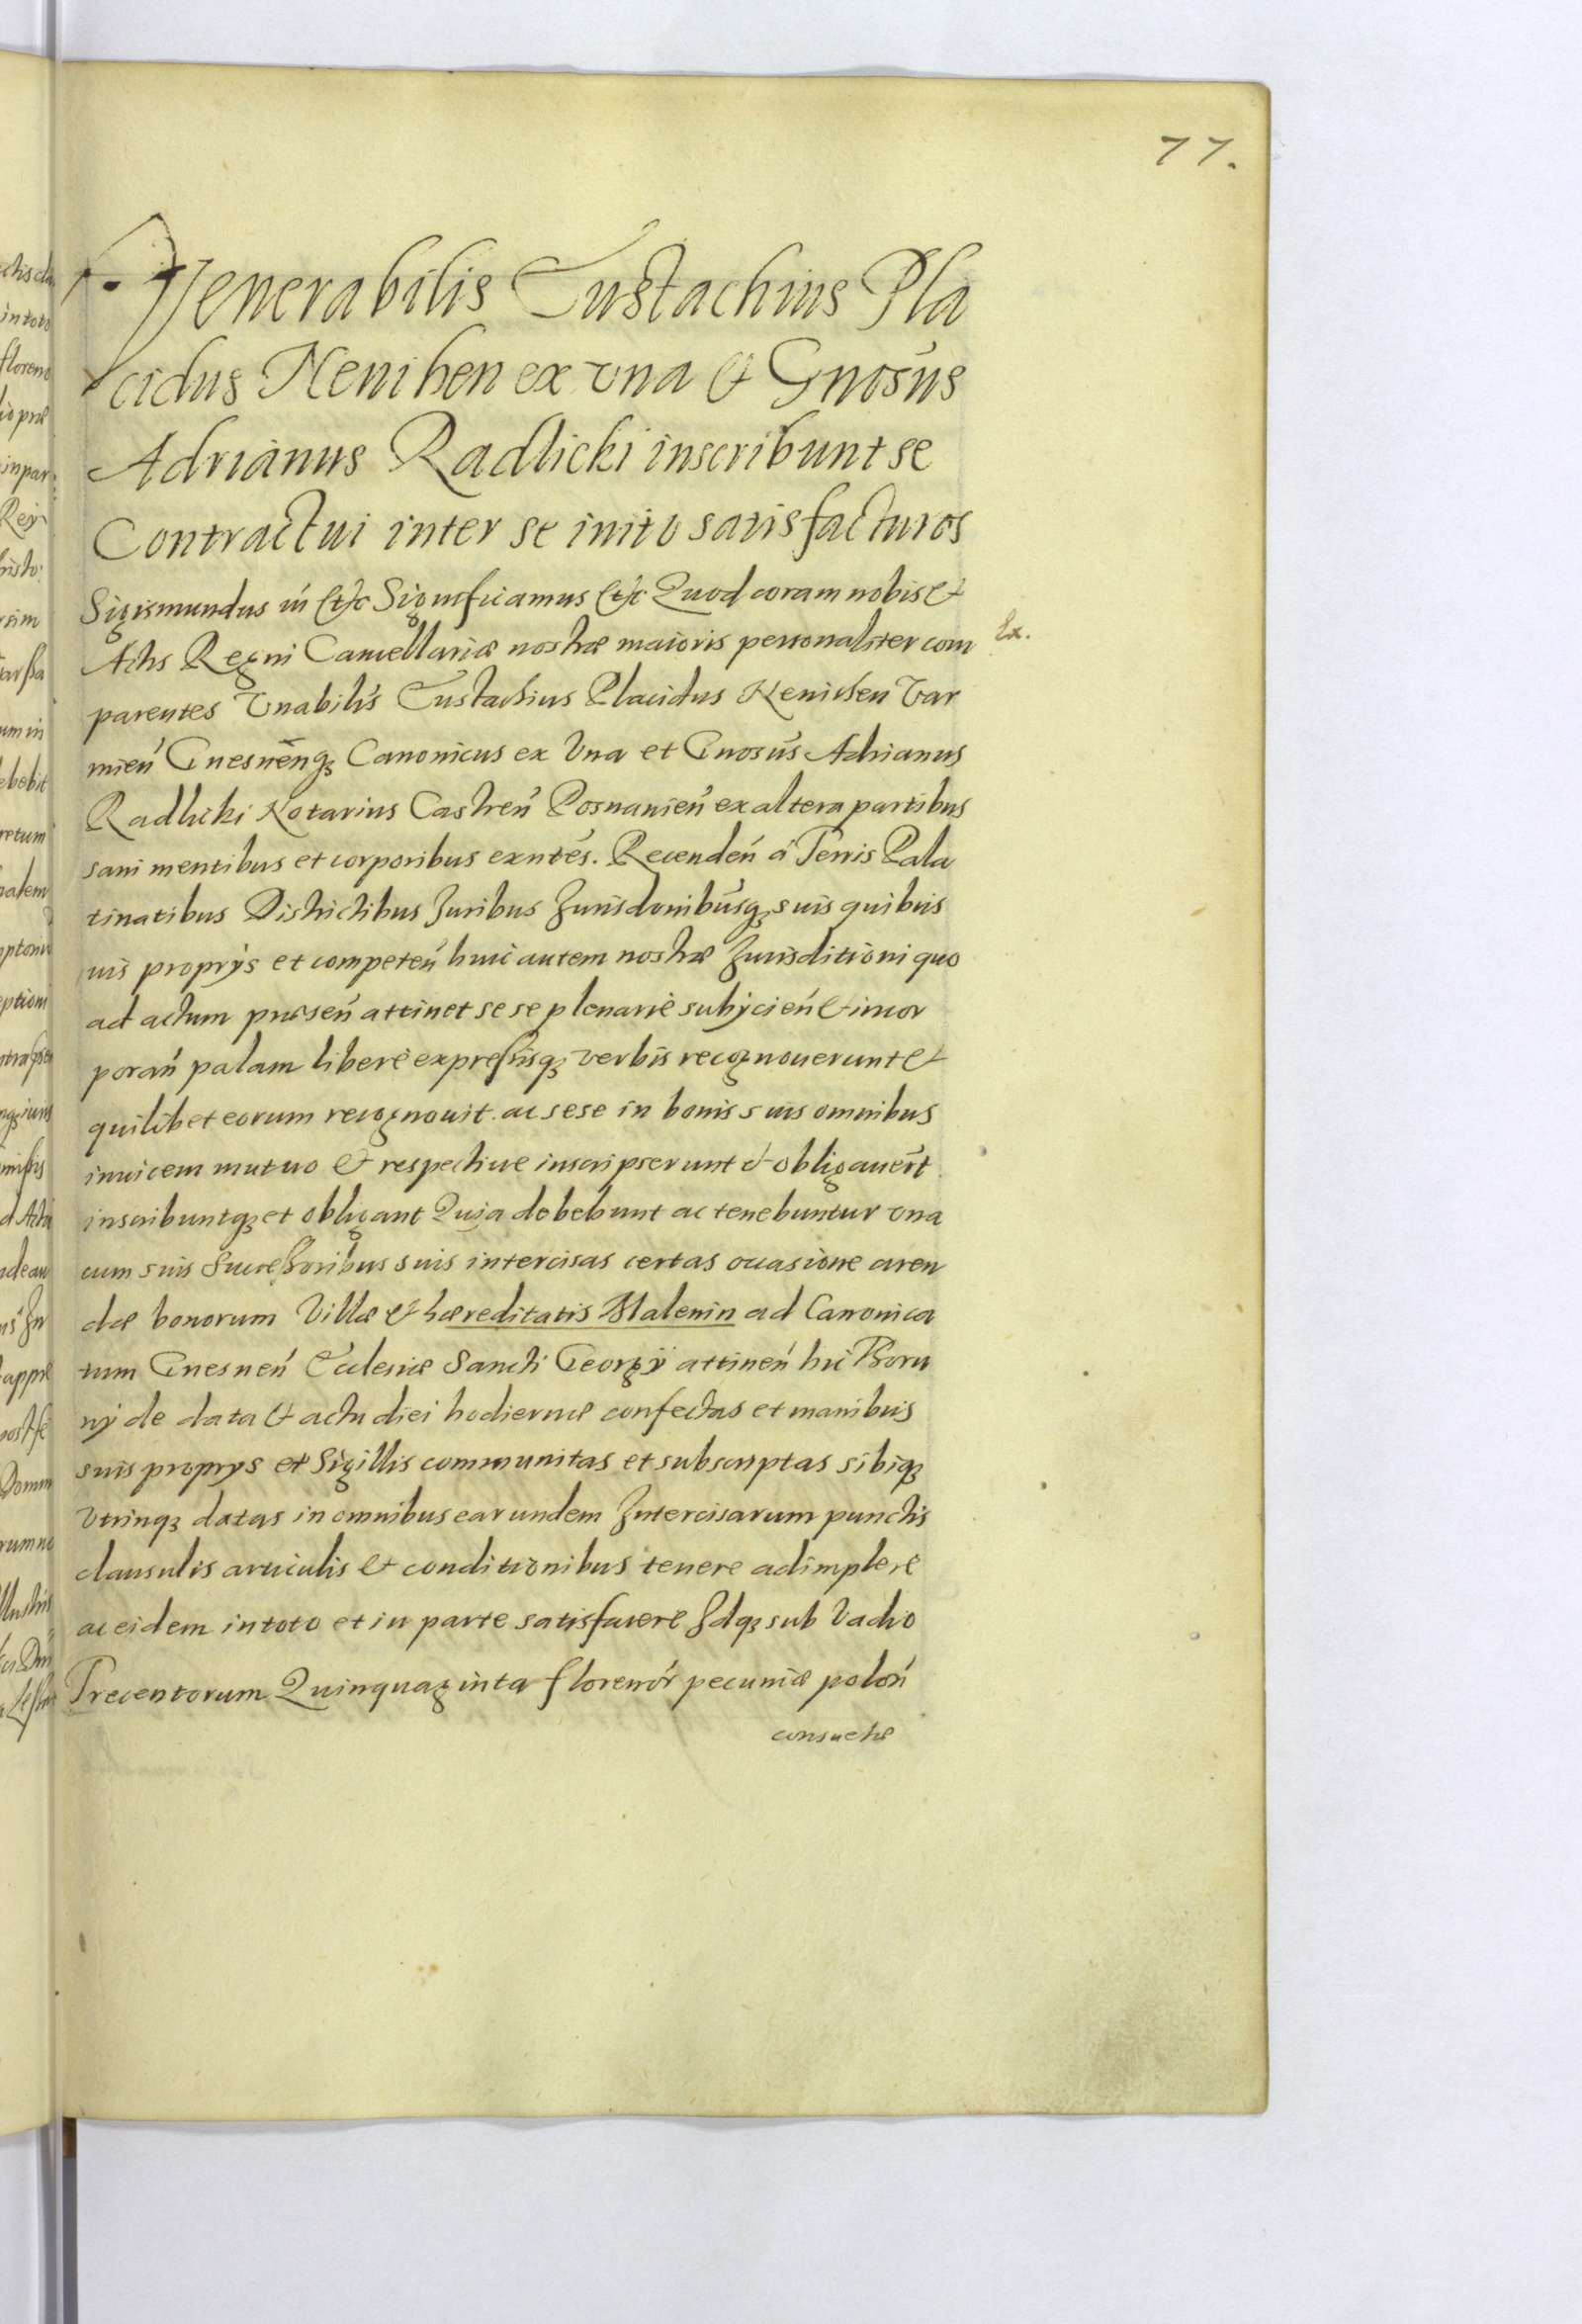 77.
Venerabilis Eustachius Pla
cidus Kenihen ex vna & Gnosus
Adrianus Radlicki inscribunt se
Contractui inter se inito satisfacturos
Sigismundus iii &c Significamus &c Quod coram nobis et
Actis Regni Cancellariæ nostræ maioris personaliter com
Ex.
parentes Vnabilis Eustachius Placidus Kenichen Var
mien Gnesnenq3 Canonicus ex Vna et Gnosus Adrianus
Radlicki Notarius Castren Posnanien ex altera partibus
sani mentibus et corporibus exntes. Recenden à Terris Pala
tinatibus Districtibus Juribus Jurisdonibusq3 suis quibus
uis proprijs et competen huic autem nostræ Jurisditioni quo
ad actum præsen attinet se se plenarie subijcien & incor
poran palam libere expressisq3 verbis recognouerunt et
quilibet eorum recognouit. ac sese in bonis suis omnibus
inuicem mutuo & respectiue inscripserunt & obligauert
inscribuntq3 et obligant Quia debebunt ac tenebuntur vna
cum suis Successoribus suis intercisas certas occasione aren
dæ bonorum Villæ & hæreditatis Malenin ad Canonica
tum Gnesnen Ecclesiæ Sancti Georgij attinen hic Toru
nij de data & actu diei hodiernæ confectas et manibus
suis proprijs et Sigillis communitas et subscriptas sibiq3
Vtrinq3 datas in omnibus earundem Intercisarum punctis
clausulis articulis & conditionibus tenere adimplere
ac eidem in toto et in parte satisfacere Idq3 sub Vadio
Trecentorum Quinquaginta florenor pecuniæ polon
consuetæ